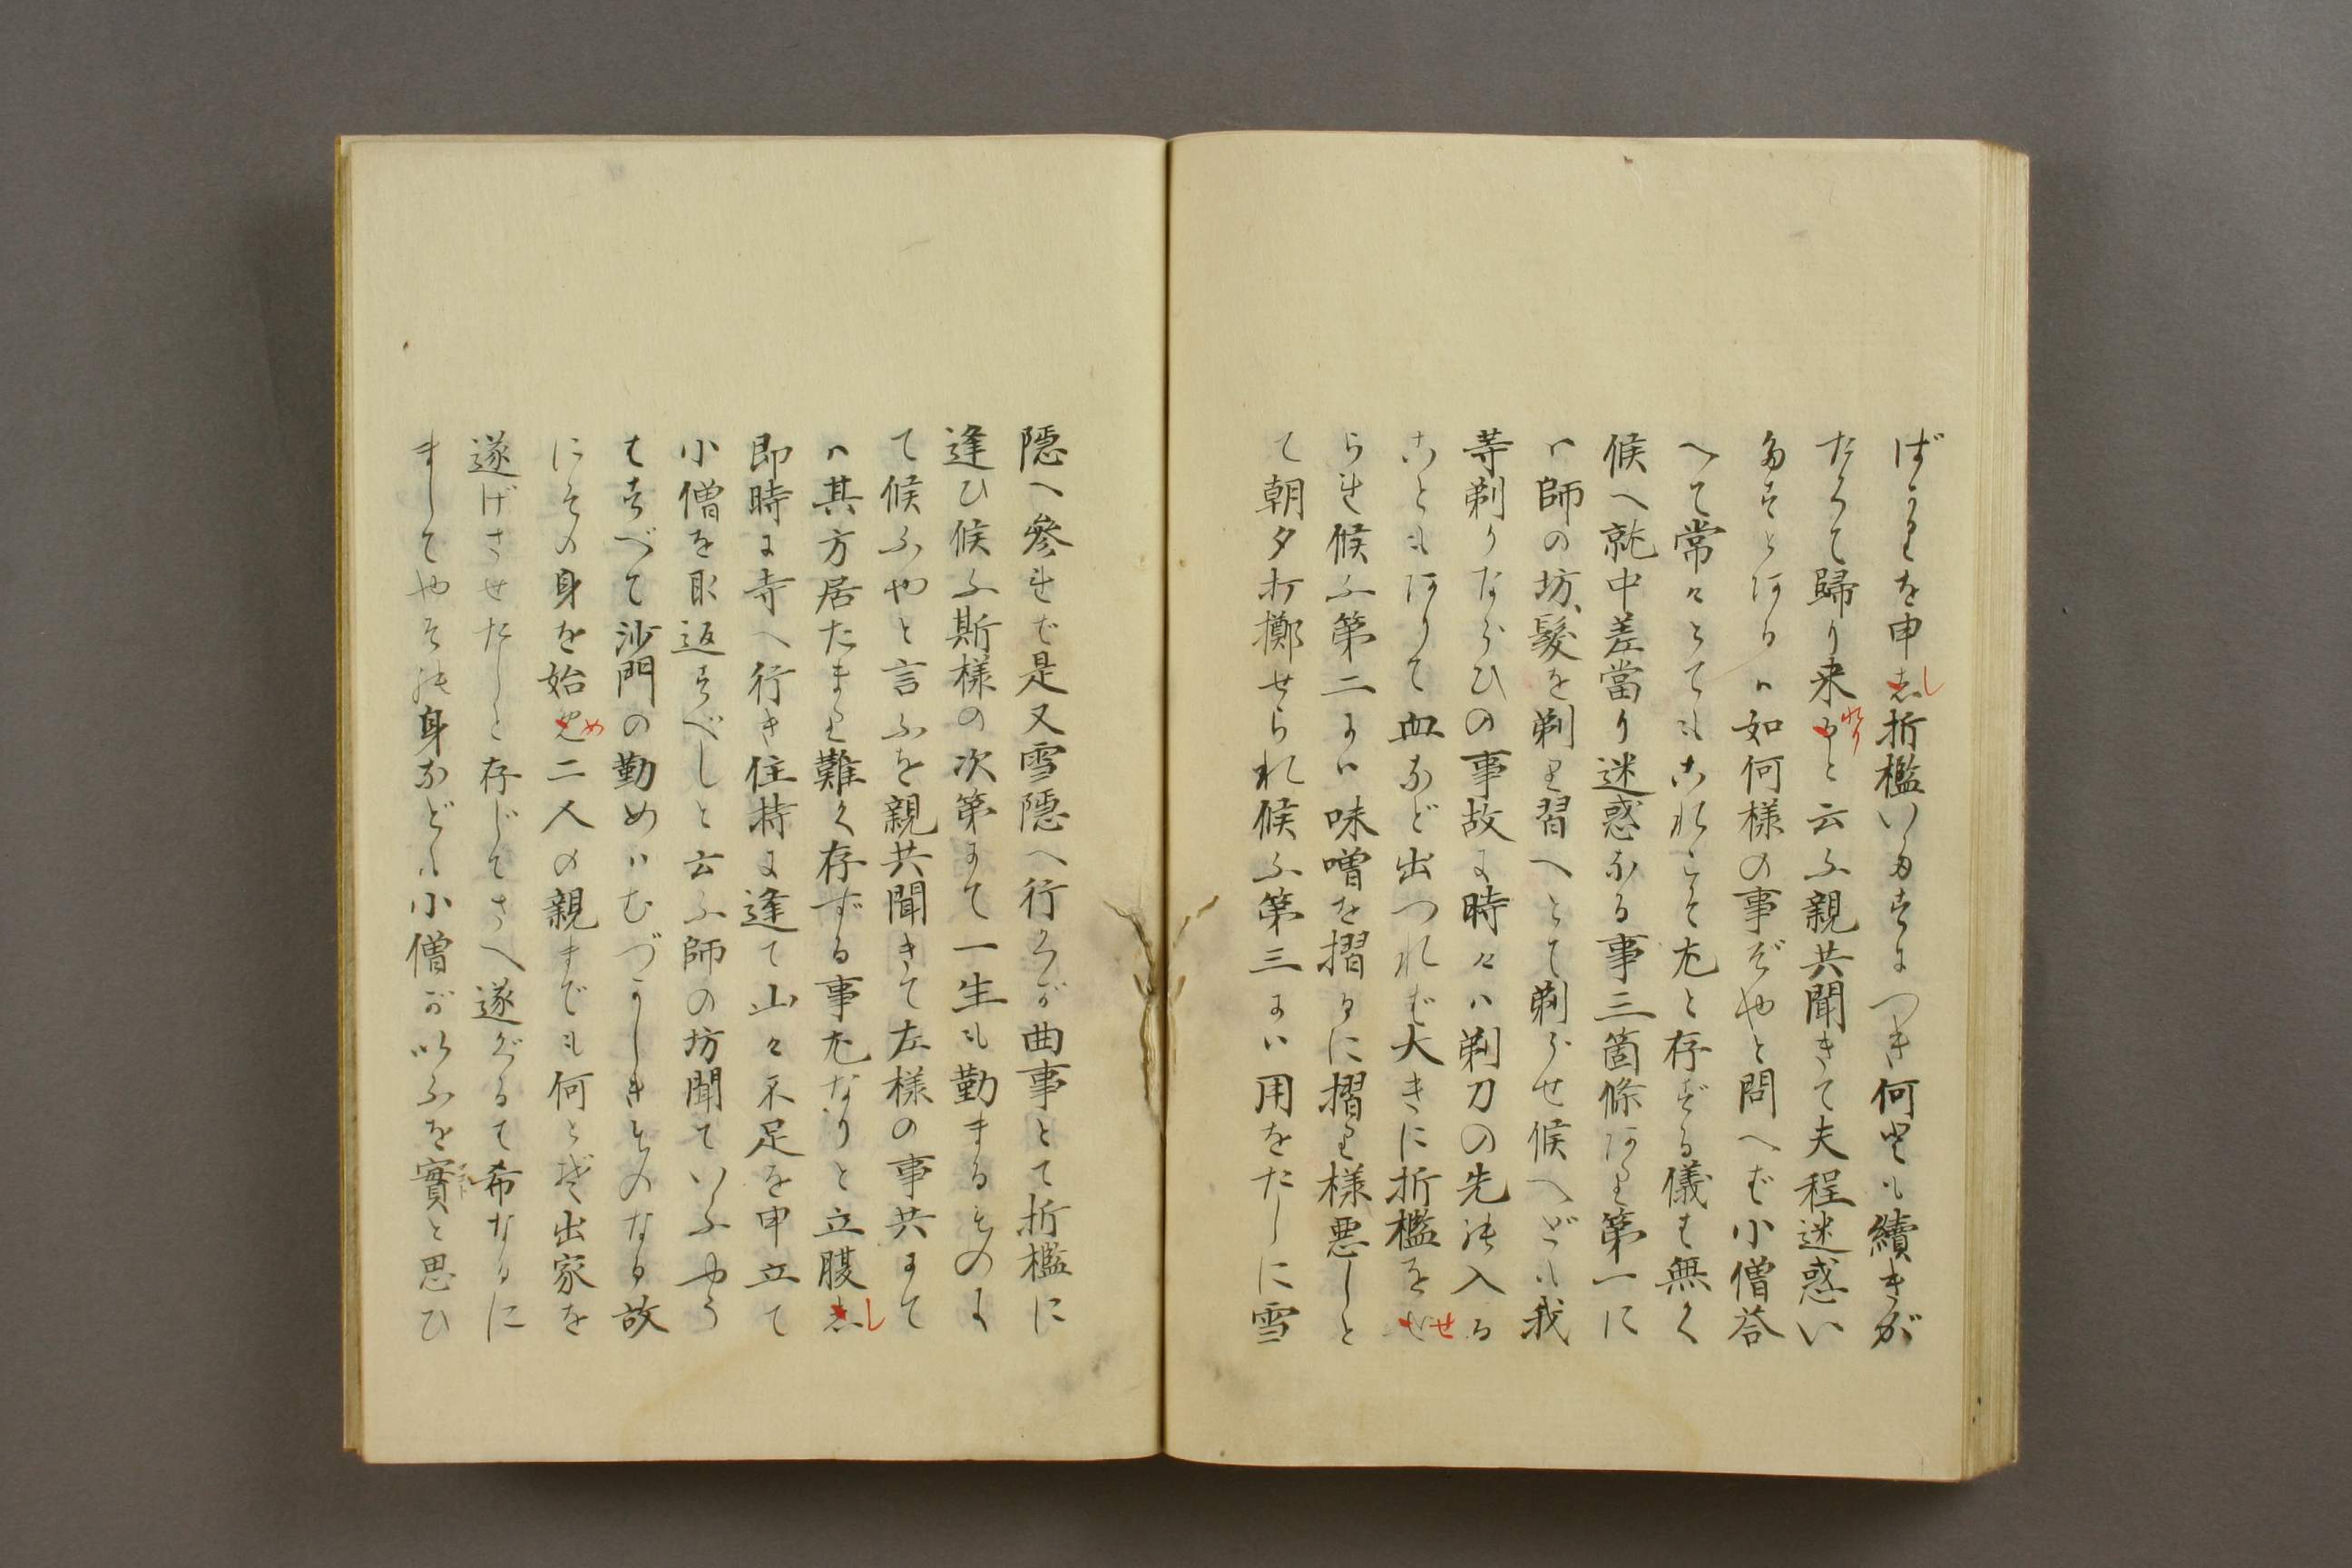 ばかりを申し折檻いたすにつき何とも續きが
たくて歸り来れりと云ふ親共聞きて夫程迷惑い
たすとあるハ如何様の事ぞやと問へば小僧荅
へて常々とてもこれこそ尤と存ずる儀も無く
候へ就中差當り迷惑なる事三箇條あり第一に
ハ師の坊、髪を剃り習へとて剃らせ候へども我
等剃りならひの事故に時々ハ剃刀の先は入る
こともありて血など出つれば大きに折檻をせ
られ候ふ第二にハ味噌を摺るに摺り様悪しと
て朝夕打擲せられ候ふ第三にハ用をたしに雪
隠へ參れば是又雪隠へ行くが曲事とて折檻に
逢ひ候ふ斯様の次第にて一生も勤まるものに
て候ふやと言ふを親共聞きて左様の事共にて
ハ其方居たまり難く存ずる事尤なりと立腹し
即時に寺へ行き住持に逢て山々不足を申立て
小僧を取返すべしと云ふ師の坊聞ていふやう
もすべて沙門の勤めハむづかしきものなる故
にその身を始め二人の親までも何とぞ出家を
遂げさせたしと存じてさへ遂ぐるて希なるに
ましてやその身などハ小僧が以ふを實と思ひ